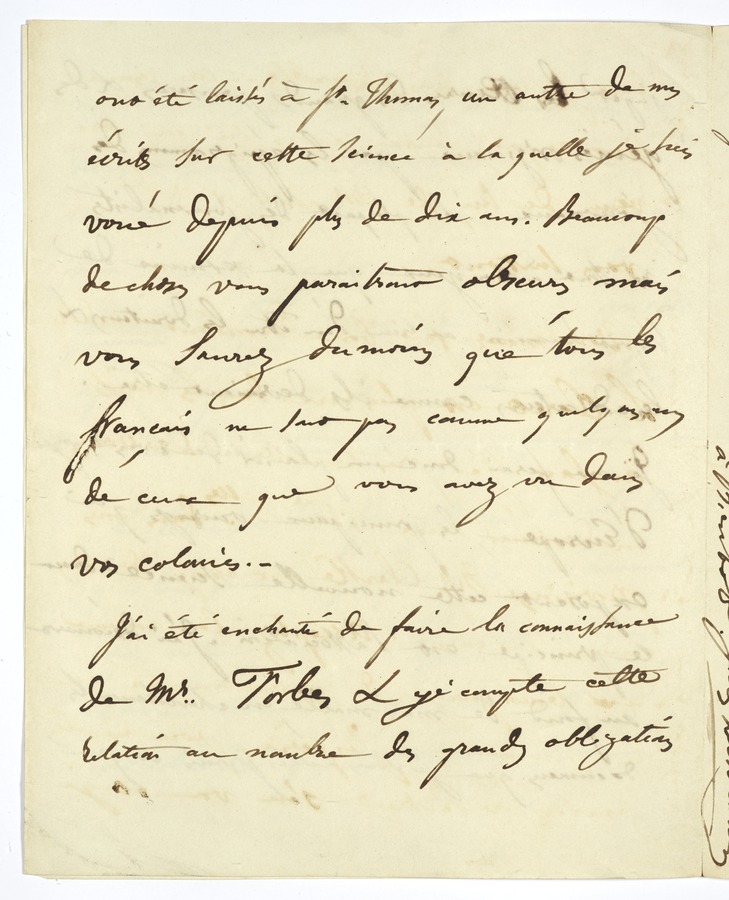 ont été laissés à St. Thomas, un autre de mes
écrits sur cette science à la quelle je suis
voué depuis plus de dix ans. Beaucoup
de choses vous paraitront obscures mais
vous saurez du moins que tous les
francais ne sont pas comme quelques uns
de ceux que vous avez vu dans
vos colonies. -
J'ai été enchanté de faire la connaissance
de Mr. Forbes & je compte cette
relation au nombre des grandes obligations